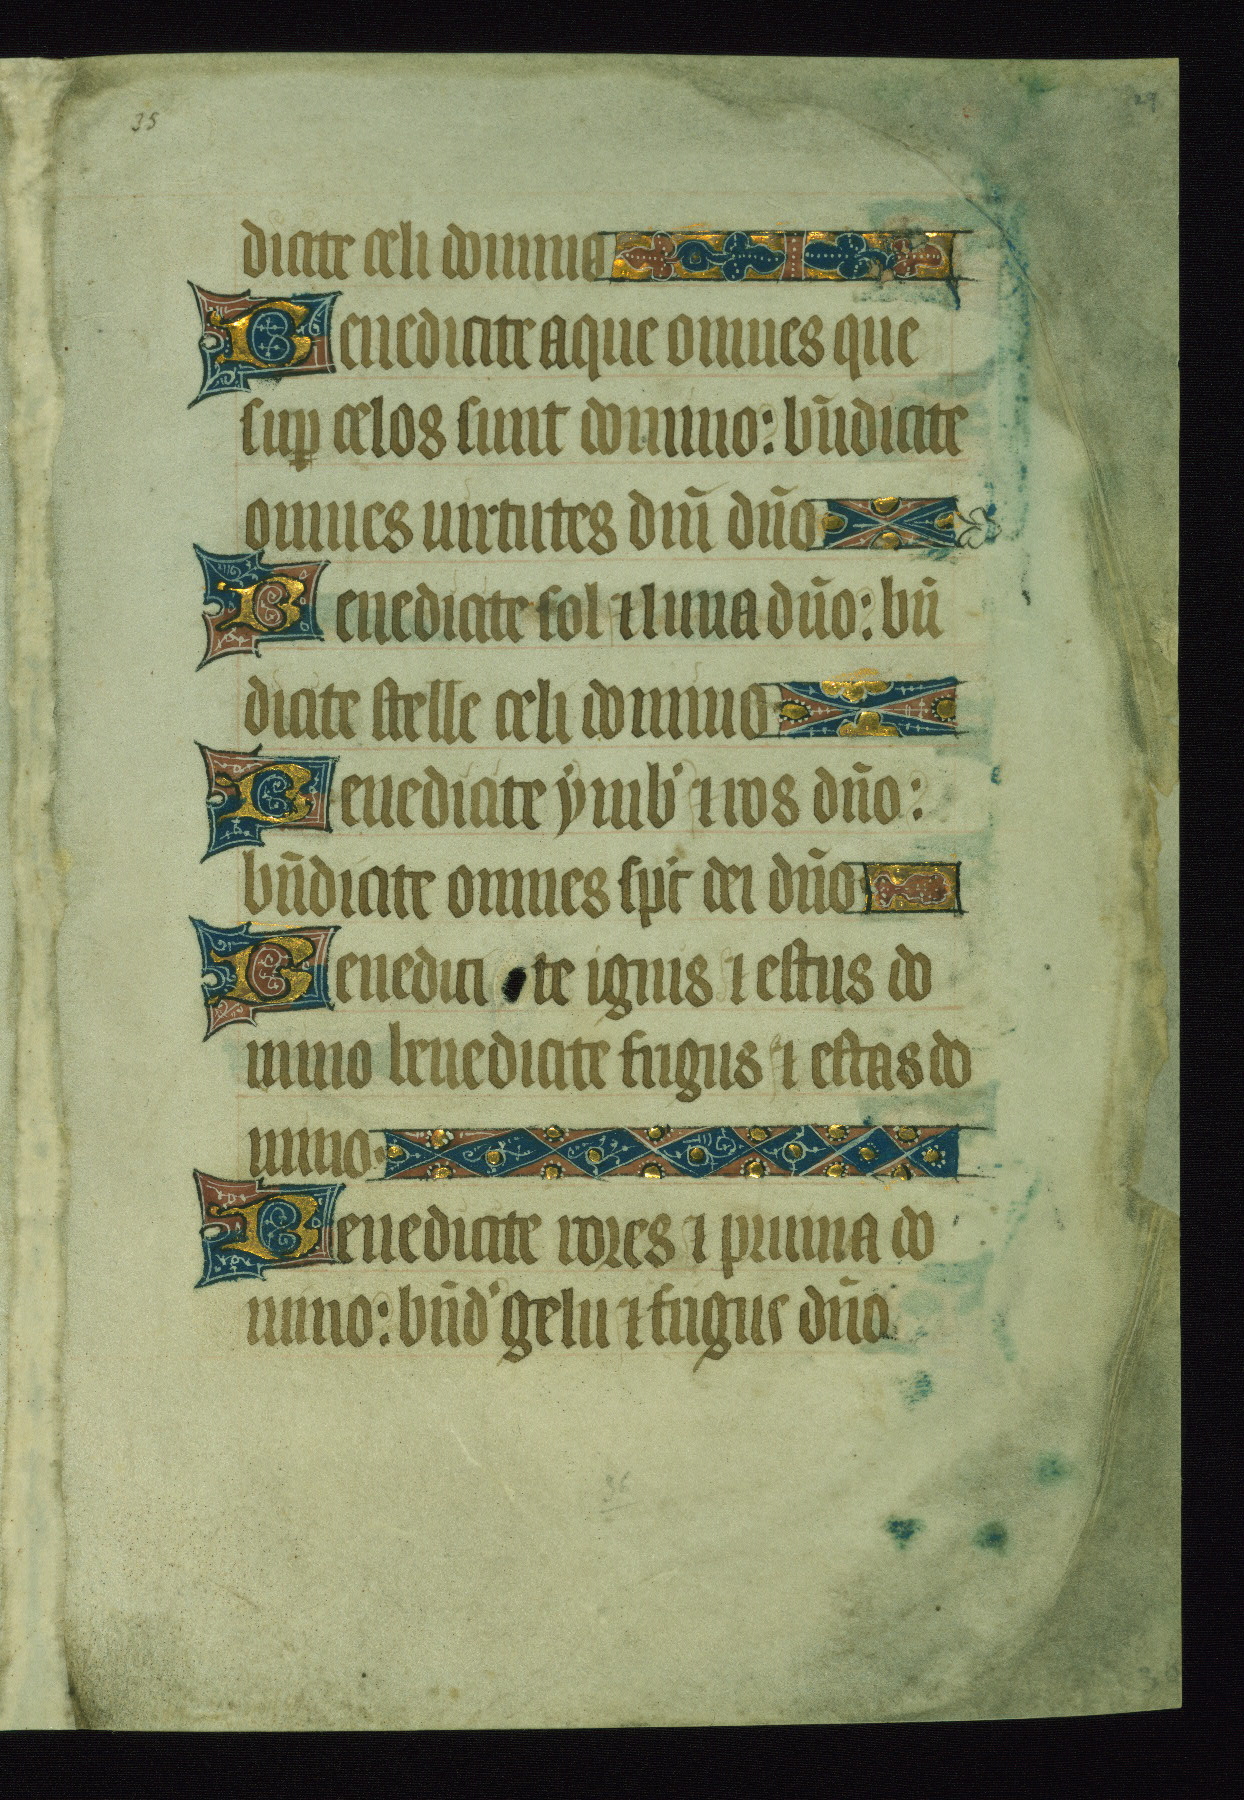 35
29
dicite celi domino
Benedicite aque omnes que
sup celos sunt domino: bn̄dicite
omnes uirtutes dn̄i dn̄o
Benedicite sol ⁊ luna dn̄o: bn̄
dicite stelle celi domino
Benedicite ẏmb' ⁊ ros dn̄o:
bn̄dicite omnes sp̄c dei dn̄o
Benedici te ignis ⁊ estus do
mino benedicite frigus ⁊ estas do
mino
Benedicite rores ⁊ pruina do
mino: bn̄d' gelu ⁊ frigus dn̄o
36